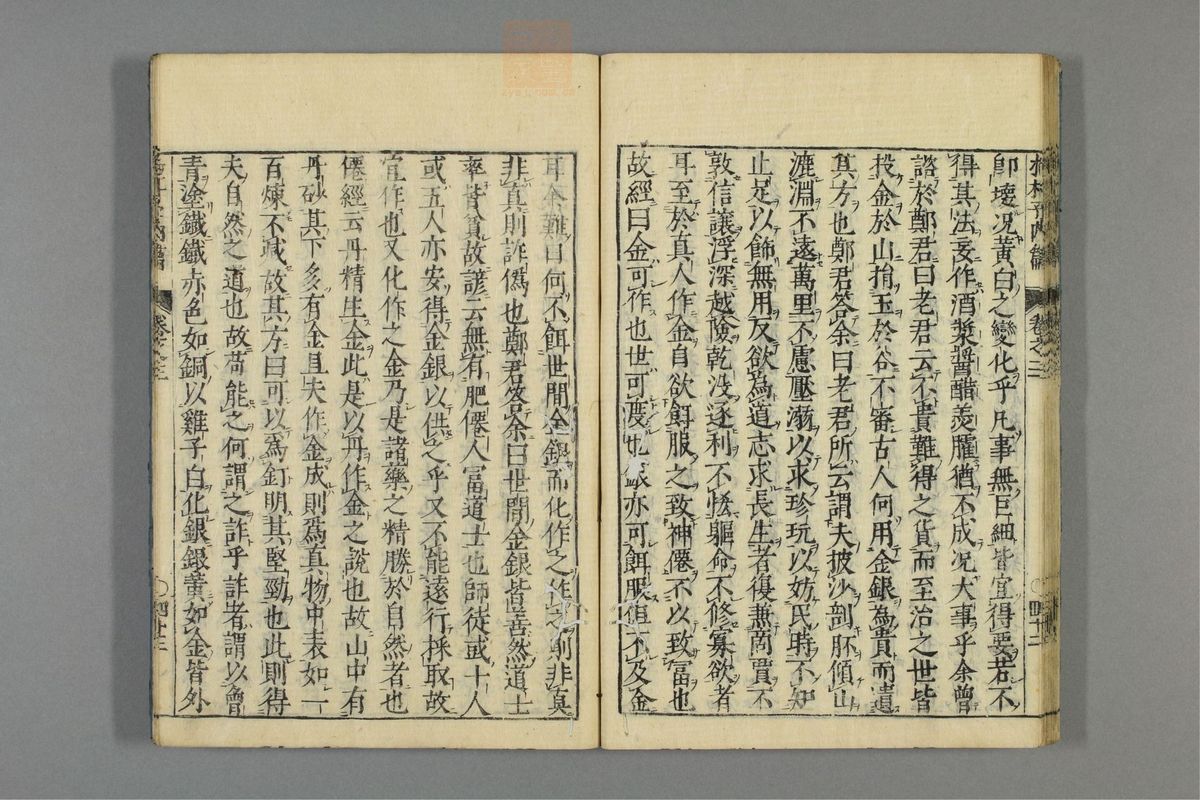 抱朴子内篇 卷之三 四十二
卽壊况黃白之變化乎凡事無巨細皆宜得要若不
得其法妄作酒漿醬醋羹臛猶不成况大事乎余曾
諮於鄭君曰老君云不貴難得之貨而至治之世皆
投金於山捐玉於谷不審古人何用金銀為貴而遺
其方也鄭君答余曰老君所云謂夫披沙剖胚傾山
漉淵不遠萬里不慮壓溺以求珍玩以妨民時不知
止足以飾無用及欲為道志求長生者復兼商賈不
敦信讓浮深越險乾没逐利不恡軀命不修寡欲者
耳至於真人作金自欲餌服之致神僊不以致富也
故經曰金可作也世可度也銀亦可餌服但不及金
耳余難曰何不餌世間金銀而化作之作之則非真
非真則詐僞也鄭君答余曰世間金銀皆善然道士
率皆貧故諺云無有肥僊人富道士也師徒或十人
或五人亦安得金銀以供之乎又不能遠行採取故
宜作也又化作之金乃是諸藥之精勝於自然者也
僊經云丹精生金此是以丹作金之說也故山中有
丹砂其下多有金且夫作金成則爲真物中表如一
百煉不减故其方曰可以爲釘明其堅勁也此則得
夫自然之道也故苟能之何謂之詐乎詐者謂以曾
青塗鐵鐵赤色如銅以雞子白化銀銀黄如金皆外
卷之三 四十二